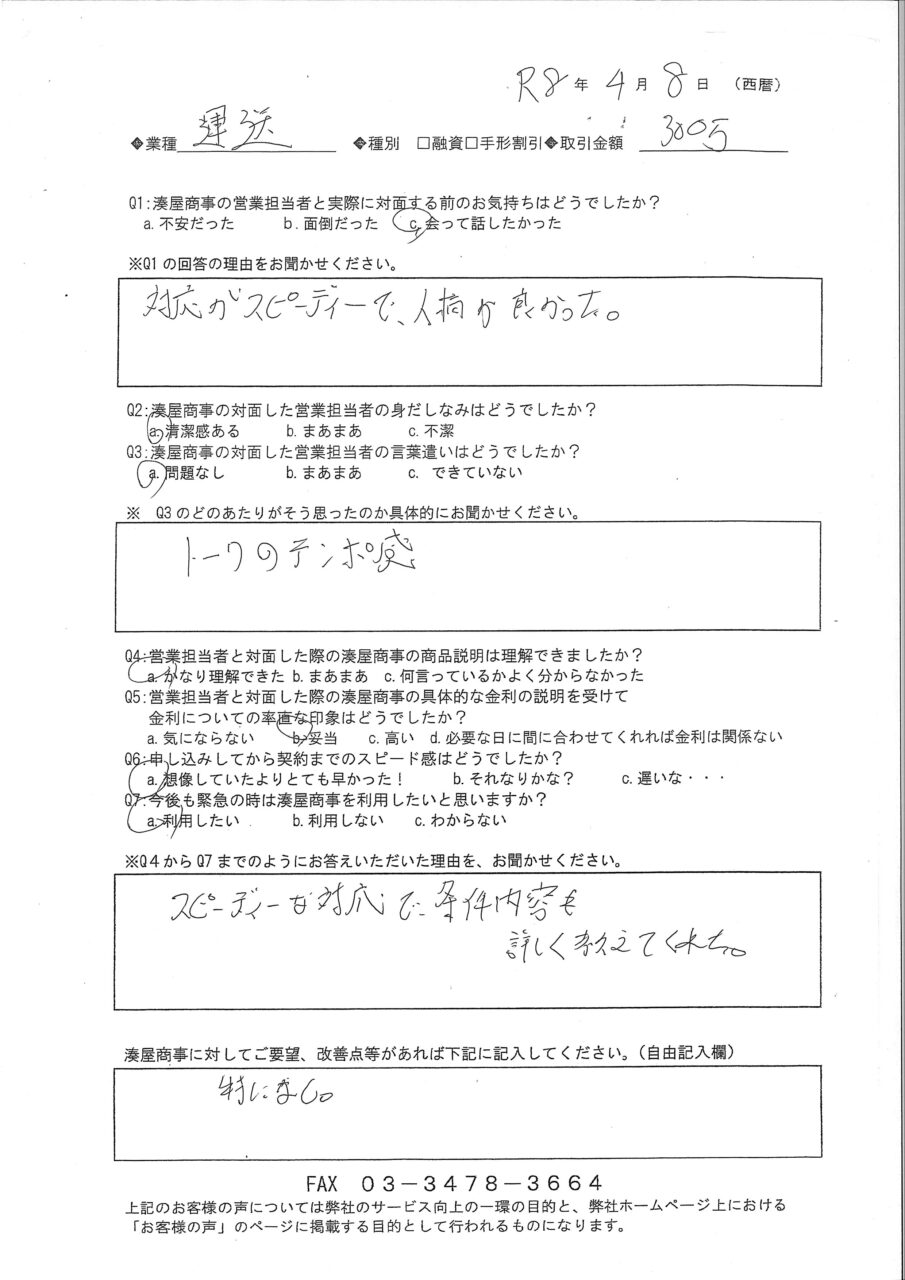 R8年 4月 8日 （西暦）
◆業種 運送 ◆種別 □融資□手形割引◆取引金額 300万
Q1:湊屋商事の営業担当者と実際に対面する前のお気持ちはどうでしたか？
a.不安だった b.面倒だった c.会って話したかった
※Q1の回答の理由をお聞かせください。
対応がスピーディーで、人柄が良かった。
Q2:湊屋商事の対面した営業担当者の身だしなみはどうでしたか？
a.清潔感ある b.まあまあ c.不潔
Q3:湊屋商事の対面した営業担当者の言葉遣いはどうでしたか？
a.問題なし b.まあまあ c. できていない
※ Q3のどのあたりがそう思ったのか具体的にお聞かせください。
トークのテンポ感
Q4:営業担当者と対面した際の湊屋商事の商品説明は理解できましたか？
a.かなり理解できた b.まあまあ c.何言っているかよく分からなかった
Q5:営業担当者と対面した際の湊屋商事の具体的な金利の説明を受けて
金利についての率直な印象はどうでしたか？
a.気にならない b.妥当 c.高い d.必要な日に間に合わせてくれれば金利は関係ない
Q6:申し込みしてから契約までのスピード感はどうでしたか？
a.想像していたよりとても早かった！ b.それなりかな？ c.遅いな・・・
Q7:今後も緊急の時は湊屋商事を利用したいと思いますか？
a.利用したい b.利用しない c.わからない
※Q4からQ7までのようにお答えいただいた理由を、お聞かせください。
スピーディーな対応で、条件内容も
詳しく教えてくれた。
湊屋商事に対してご要望、改善点等があれば下記に記入してください。（自由記入欄）
特になし。
FAX 03－3478－3664
上記のお客様の声については弊社のサービス向上の一環の目的と、弊社ホームページ上における
「お客様の声」のページに掲載する目的として行われるものになります。